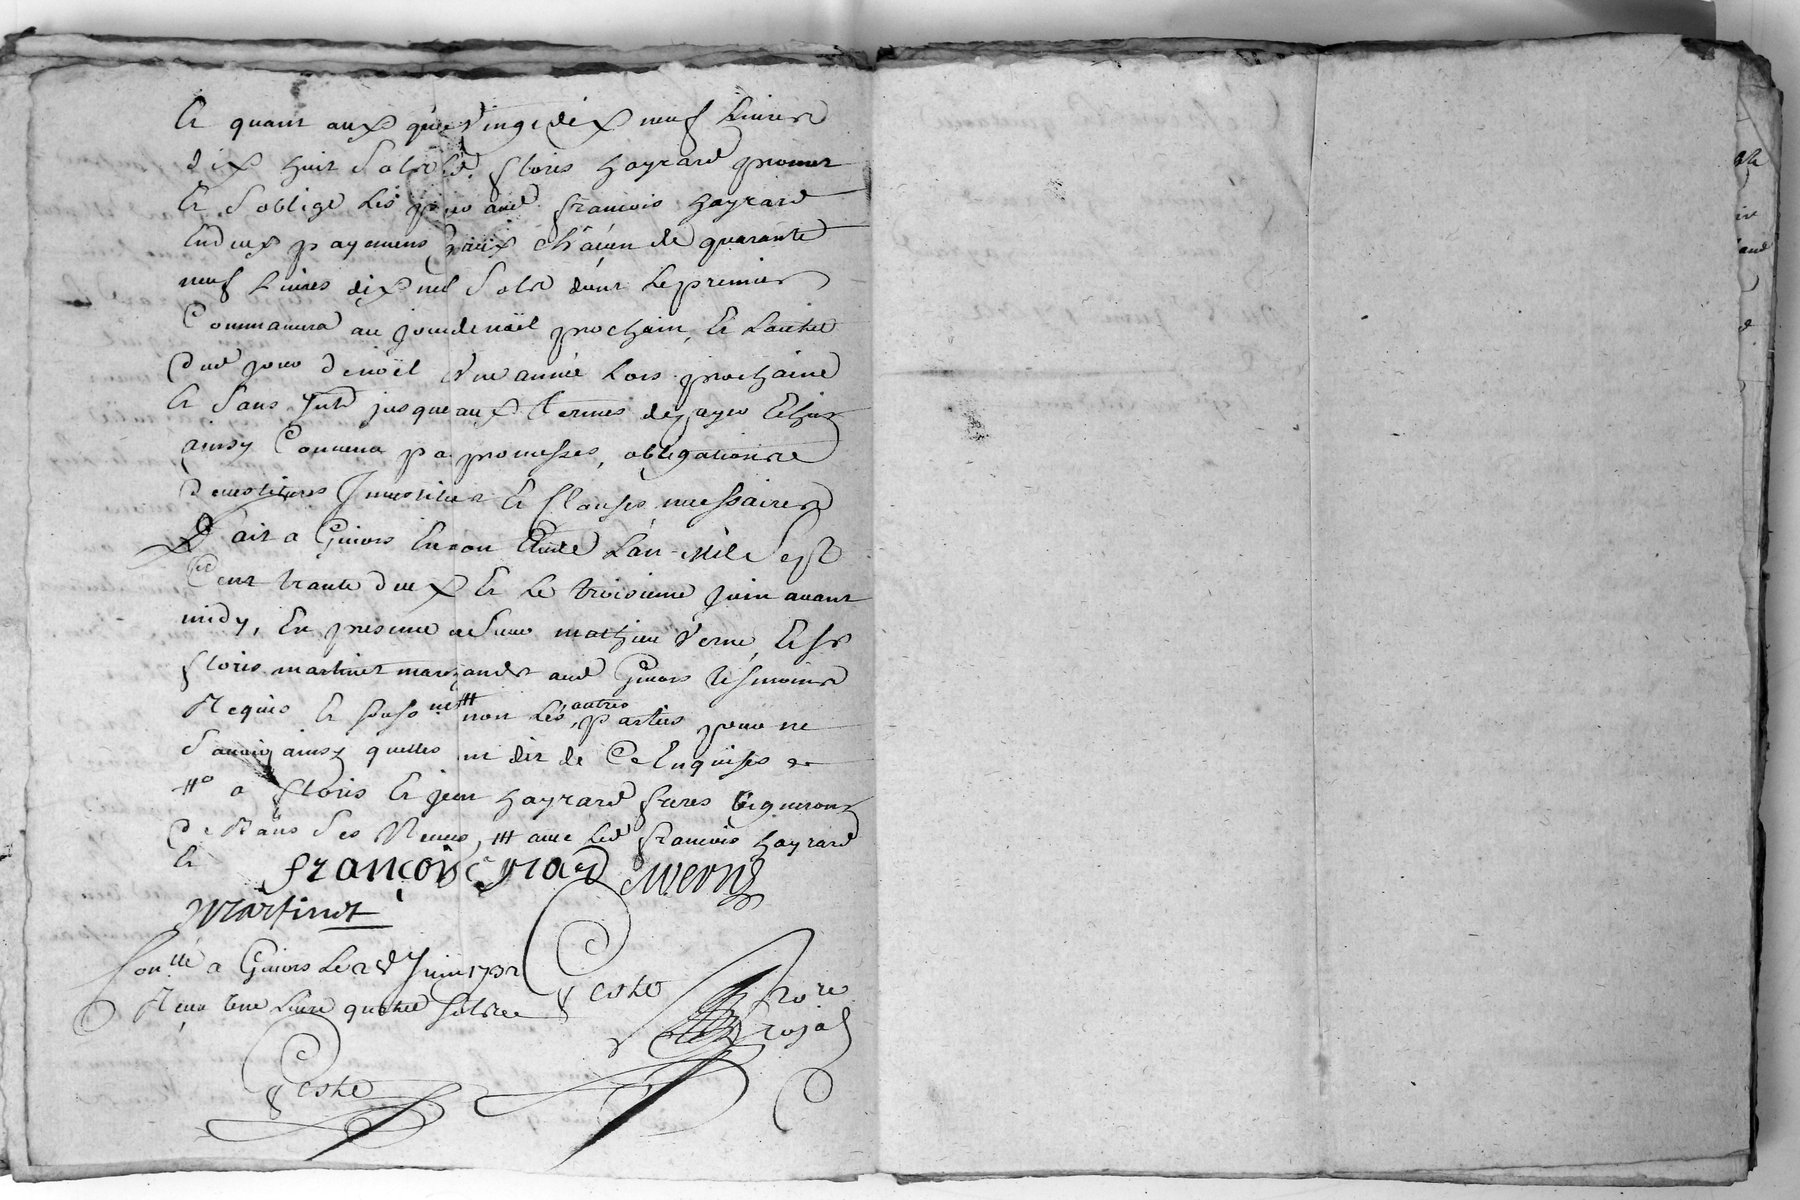 Et quant aux quatre Vingt dix neuf Livres
dix huit Sols led. floris hayrard promet
Et S oblige les payer aud françois hayrard
En deux payemens Egaux châcun de quarante
neuf Livres dix neuf Sols dont Le premier
Commancera au jour de noël prochain, Et Lautre
aud jour de noël d'une année Lors prochaine
Et Sans Int jusques aux termes de payer Echus
ainsy Convenu par promesses, obligations
devestitures Investitures Et Clauses necessaires
fait a Givors En mon Etude L'an Mil Sept
Cent trante deux Et Le troisieme Juin avant
midy, En presence de Sieur mathieu Verne, Et Sr
floris martinet marchands aud Givors tesmoins
Requis Et soussignés non Les autres parties pour ne
Sçavoir ainsy quelles ont dit de Ce Enquises
a floris Et jean hayrard freres Vignerons
avec Led françois hayrard
Et françois Erard M Verne
Martinet
Con.llé a Givors Le 2 d Juin 1732
Reçu une Livre quatre Sols
Coste
Coste